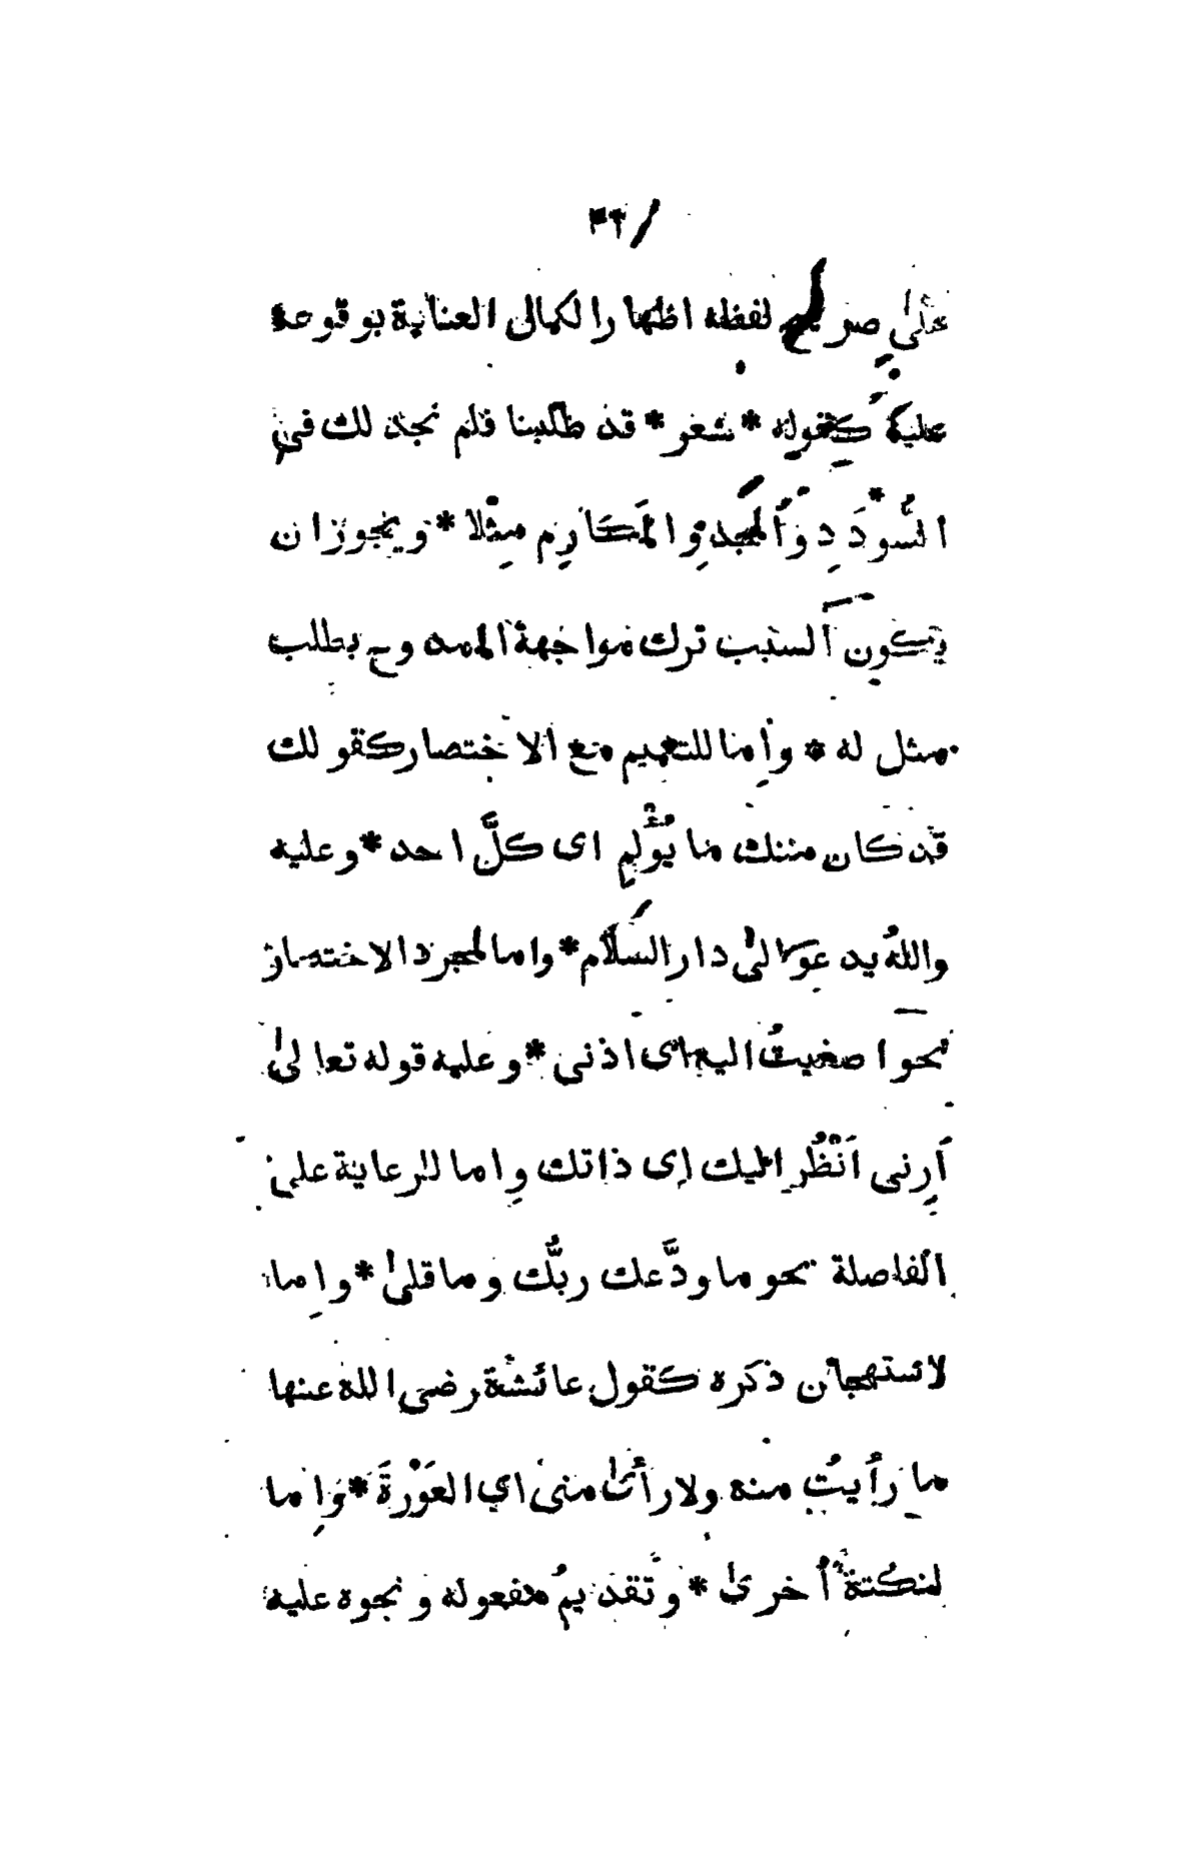 ٣٢
على صريح لفظه اظهارا لكمال العناية بوقوعه
عليه كقوله * شعر * قد طلبنا فلم نجد لك في
السُّودَدِ وَالمجدِ والمَكَارِم مِثْلا * ويجوز ان
يكون السبب ترك مواجهة الممدوح بطلب
مثل له * وإما للتعميم مع الاختصار كقولك
قد كان منك ما يُؤْلِم اى كلَّ احد * وعليه
واللهُ يدعوا الىٰ دار السَّلام * واما لمجرد الاختصار
نحو اصغيتُ اليه اى اذنى * وعليه قوله تعالىٰ
أَرِنى اَنْظُر اليك اى ذاتك وِاما للرعاية على
الفاصلة نحو ما ودَّعك ربُّك وما قلىٰ * واِما
لاستهجان ذكره كقول عائشة رضى الله عنها
ما رأيتُ منه ولا رأىٰ منى اى العَوْرَةَ * واِما
لنكتة أُخرىٰ * وتقديمُ مفعوله ونحوه عليه